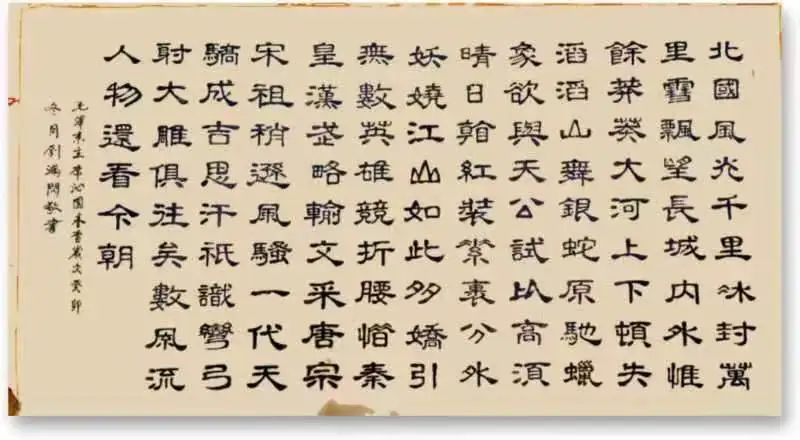 北國風光千里冰封萬
里雪飄望長城內外惟
餘莽莽大河上下頓失
滔滔山舞銀蛇原馳蠟
象欲與天公試比高須
晴日看紅裝素裹分外
妖嬈江山如此多嬌引
無數英雄競折腰惜秦
皇漢武略輸文采唐宗
宋祖稍遜風騷一代天
驕成吉思汗祇識彎弓
射大雕俱往矣數風流
人物還看今朝
毛澤東主席沁園春雪歲次癸卯
冬月劉滿敬書